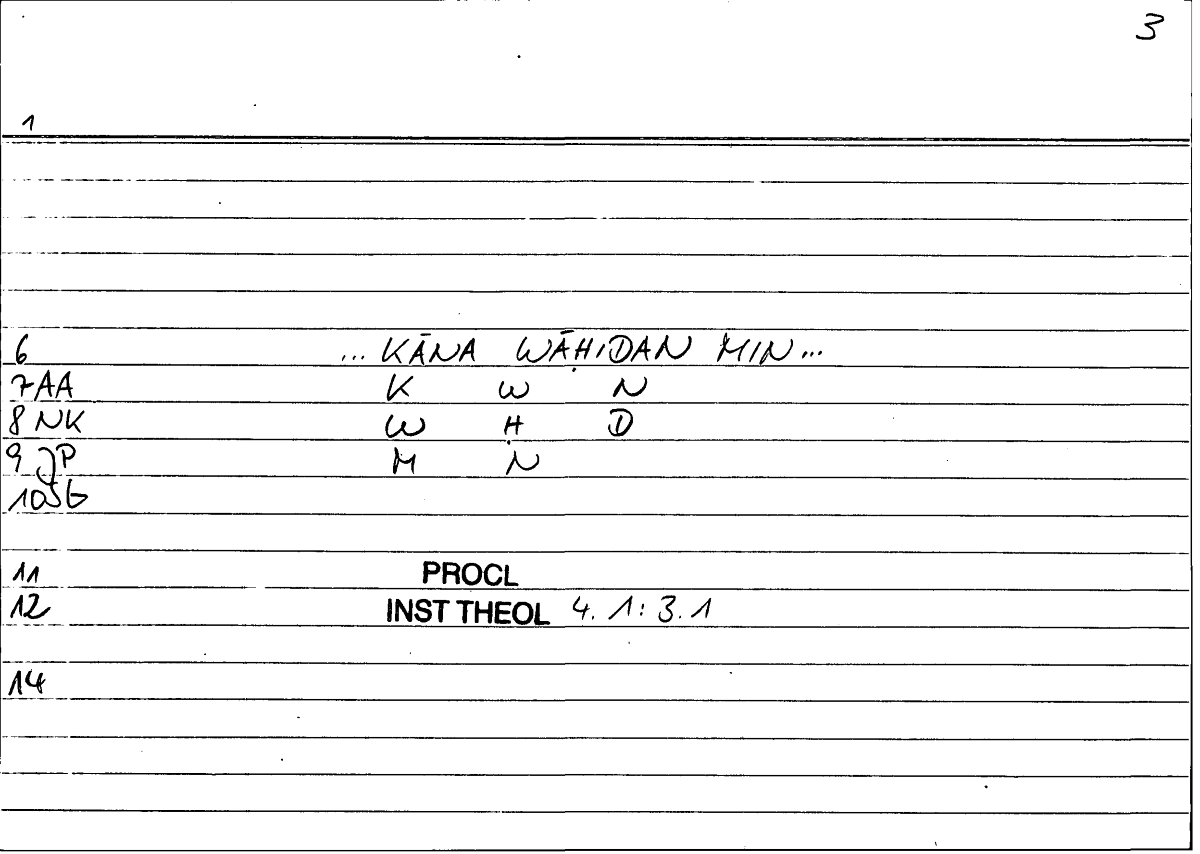 3
1
6 ... KĀNA WĀḤIDAN MIN...
7 AA K W N
8 NK W Ḥ D
9 JP M N
10 SG
11 PROCL
12 INST THEOL 4. 1: 3. 1
14